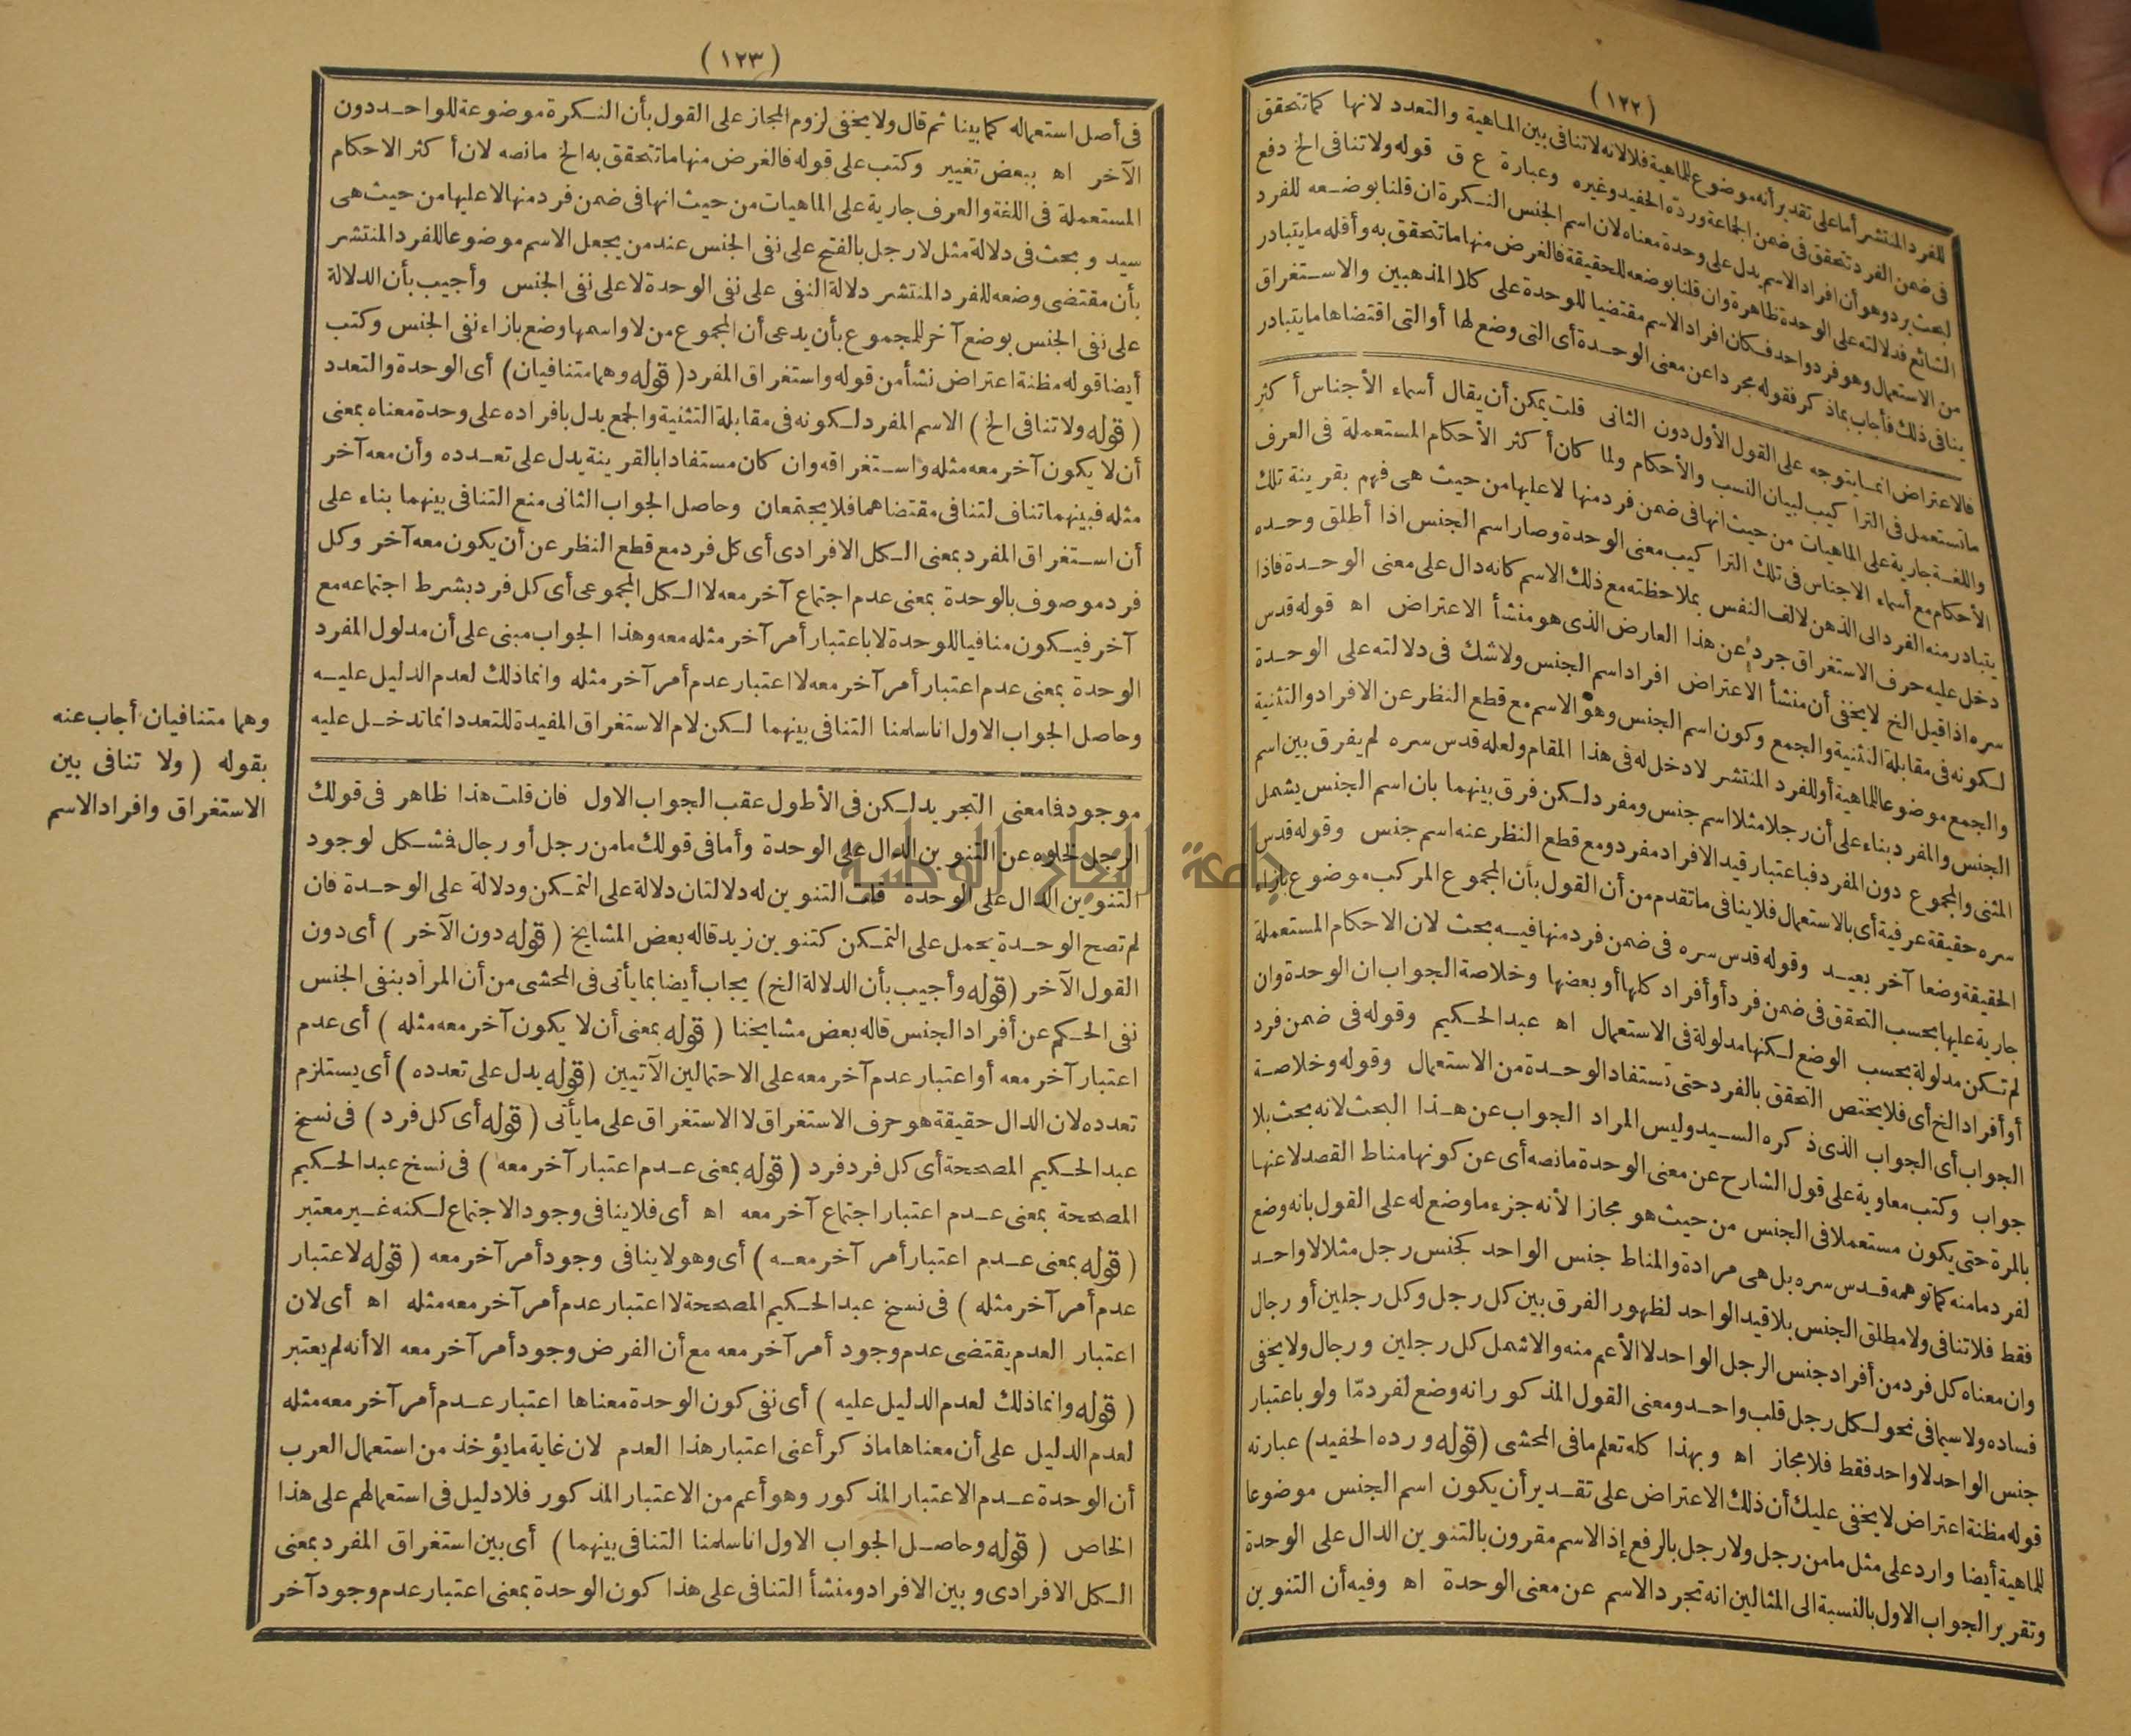 (١٢٢)
للفرد المنتشر أما على تقدير أنه موضوع للماهية فلا لانه لا تنافى بين الماهية والتعدد لانها كما تتحقق
فى ضمن الفرد تتحقق فى ضمن الجماعة ورده الحفيد وغيره وعبارة ع ق قوله ولا تنافى الخ دفع
لبحث يرد وهو أن افراد الاسم يدل على وحدة معناه لان اسم الجنس النكرة ان قلنا بوضعه للفرد
الشائع فدلالته على الوحدة ظاهرة وان قلنا بوضعه للحقيقة فالغرض منها ما تتحقق به وأقله ما يتبادر
من الاستعمال وهو فرد واحد فكان افراد الاسم مقتضيا للوحدة على كلا المذهبين والاستغراق
ينافى ذلك فأجاب بما ذكر فقوله مجردا عن معنى الوحدة أى التى وضع لها أو التى اقتضاها ما يتبادر
فالاعتراض انما يتوجه على القول الأول دون الثانى قلت يمكن أن يقال أسماء الأجناس أكثر
ما تستعمل فى التراكيب لبيان النسب والأحكام ولما كان أكثر الأحكام المستعملة فى العرف
واللغة جارية على الماهيات من حيث انها فى ضمن فرد منها لا عليها من حيث هى فهم بقرينة تلك
الأحكام مع أسماء الاجناس فى تلك التراكيب معنى الوحدة وصار اسم الجنس اذا أطلق وحده
يتبادر منه الفرد الى الذهن لالف النفس بملاحظته مع ذلك الاسم كانه دال على معنى الوحدة فاذا
دخل عليه حرف الاستغراق جرد عن هذا العارض الذى هو منشأ الاعتراض اه قوله قدس
سره اذا قيل الخ لا يخفى أن منشأ الاعتراض افراد اسم الجنس ولا شك فى دلالته على الوحدة
لكونه فى مقابلة التثنية والجمع وكون اسم الجنس وهو الاسم مع قطع النظر عن الافراد والتثنية
والجمع موضوعا للماهية أو للفرد المنتشر لا دخل له فى هذا المقام ولعله قدس سره لم يفرق بين اسم
الجنس والمفرد بناء على أن رجلا مثلا اسم جنس ومفرد لكن فرق بينهما بان اسم الجنس يشمل
المثنى والمجموع دون المفرد فباعتبار قيد الافراد مفرد ومع قطع النظر عنه اسم جنس وقوله قدس
سره حقيقة عرفية أى بالاستعمال فلا ينافى ما تقدم من أن القول بأن المجموع المركب موضوع بازاء
الحقيقة وضعا آخر بعيد وقوله قدس سره فى ضمن فرد منها فيه بحث لان الاحكام المستعملة
جارية عليها بحسب التحقق فى ضمن فرد أو أفراد كلها أو بعضها وخلاصة الجواب ان الوحدة وان
لم تكن مدلولة بحسب الوضع لكنها مدلولة فى الاستعمال اه عبد الحكيم وقوله فى ضمن فرد
أو أفراد الخ أى فلا يختص التحقق بالفرد حتى تستفاد الوحدة من الاستعمال وقوله وخلاصة
الجواب أى الجواب الذى ذكره السيد وليس المراد الجواب عن هذا البحث لانه بحث بلا
جواب وكتب معاوية على قول الشارح عن معنى الوحدة ما نصه أى عن كونها مناط القصد لا عنها
بالمرة حتى يكون مستعملا فى الجنس من حيث هو مجازا لأنه جزء ما وضع له على القول بانه وضع
لفرد ما منه كما توهمه قدس سره بل هى مرادة والمناط جنس الواحد كجنس رجل مثلا لا واحد
فقط فلا تنافى ولا مطلق الجنس بلا قيد الواحد لظهور الفرق بين كل رجل وكل رجلين أو رجال
وان معناه كل فرد من أفراد جنس الرجل الواحد لا الأعم منه والا شمل كل رجلين ورجال ولا يخفى
فساده ولا سيما فى نحو لكل رجل قلب واحد ومعنى القول المذكور انه وضع لفرد مّا ولو باعتبار
جنس الواحد لا واحد فقط فلا مجاز اه وبهذا كله تعلم ما فى المحشى (قوله ورده الحفيد) عبارته
قوله مظنة اعتراض لا يخفى عليك أن ذلك الاعتراض على تقدير أن يكون اسم الجنس موضوعا
للماهية أيضا وارد على مثل ما من رجل ولا رجل بالرفع إذ الاسم مقرون بالتنوين الدال على الوحدة
وتقرير الجواب الاول بالنسبة الى المثالين انه تجرد الاسم عن معنى الوحدة اه وفيه أن التنوين
(١٢٣)
فى أصل استعماله كما بينا ثم قال ولا يخفى لزوم المجاز على القول بأن النكرة موضوعة للواحد دون
الآخر اه ببعض تغيير وكتب على قوله فالغرض منها ما تتحقق به الخ ما نصه لان أكثر الاحكام
المستعملة فى اللغة والعرف جارية على الماهيات من حيث انها فى ضمن فرد منها لا عليها من حيث هى
سيد وبحث فى دلالة مثل لا رجل بالفتح على نفى الجنس عند من يجعل الاسم موضوعا للفرد المنتشر
بأن مقتضى وضعه للفرد المنتشر دلالة النفى على نفى الوحدة لا على نفى الجنس وأجيب بأن الدلالة
على نفى الجنس بوضع آخر للمجموع بأن يدعى أن المجموع من لا واسمها وضع بازاء نفى الجنس وكتب
أيضا قوله مظنة اعتراض نشأ من قوله واستغراق المفرد (قوله وهما متنافيان) أى الوحدة والتعدد
(قوله ولا تنافى الخ) الاسم المفرد لكونه فى مقابلة التثنية والجمع يدل بافراده على وحدة معناه بمعنى
أن لا يكون آخر معه مثله واستغراقه وان كان مستفادا بالقرينة يدل على تعدده وأن معه آخر
مثله فبينهما تناف لتنافى مقتضاهما فلا يجتمعان وحاصل الجواب الثانى منع التنافى بينهما بناء على
أن استغراق المفرد بمعنى الكل الافرادى أى كل فرد مع قطع النظر عن أن يكون معه آخر وكل
فرد موصوف بالوحدة بمعنى عدم اجتماع آخر معه لا الكل المجموعى أى كل فرد بشرط اجتماعه مع
آخر فيكون منافيا للوحدة لا باعتبار أمر آخر مثله معه وهذا الجواب مبنى على أن مدلول المفرد
الوحدة بمعنى عدم اعتبار أمر آخر معه لا اعتبار عدم أمر آخر مثله وانما ذلك لعدم الدليل عليه
وحاصل الجواب الاول انا سلمنا التنافى بينهما لكن لام الاستغراق المفيدة للتعدد انما تدخل عليه
وهما متنافيان أجاب عنه
بقوله (ولا تنافى بين
الاستغراق وافراد الاسم
موجود فما معنى التجريد لكن فى الأطول عقب الجواب الاول فان قلت هذا ظاهر فى قولك
الرجل لخلوه عن التنوين الدال على الوحدة وأما فى قولك ما من رجل أو رجال فشكل لوجود
التنوين الدال على الوحدة قلت التنوين له دلالتان دلالة على التمكن ودلالة على الوحدة فان
لم تصح الوحدة يحمل على التمكن كتنوين زيد قاله بعض المشايخ (قوله دون الآخر) أى دون
القول الآخر (قوله وأجيب بأن الدلالة الخ) يجاب أيضا بما يأتى فى المحشى من أن المراد بنفى الجنس
نفى الحكم عن أفراد الجنس قاله بعض مشايخنا (قوله بمعنى أن لا يكون آخر معه مثله) أى عدم
اعتبار آخر معه أو اعتبار عدم آخر معه على الاحتمالين الآتيين (قوله يدل على تعدده) أى يستلزم
تعدده لان الدال حقيقة هو حرف الاستغراق لا الاستغراق على ما يأتى (قوله أى كل فرد) فى نسخ
عبد الحكيم المصححة أى كل فرد فرد (قوله بمعنى عدم اعتبار آخر معه) فى نسخ عبد الحكيم
المصححة بمعنى عدم اعتبار اجتماع آخر معه اه أى فلا ينافى وجود الاجتماع لكنه غير معتبر
(قوله بمعنى عدم اعتبار أمر آخر معه) أى وهو لا ينافى وجود أمر آخر معه (قوله لا اعتبار
عدم أمر آخر مثله) فى نسخ عبد الحكيم المصححة لا اعتبار عدم أمر آخر معه مثله اه أى لان
اعتبار العدم يقتضى عدم وجود أمر آخر معه مع أن الفرض وجود أمر آخر معه الا أنه لم يعتبر
(قوله وانما ذلك لعدم الدليل عليه) أى نفى كون الوحدة معناها اعتبار عدم أمر آخر معه مثله
لعدم الدليل على أن معناها ما ذكر أعنى اعتبار هذا العدم لان غاية ما يؤخذ من استعمال العرب
أن الوحدة عدم الاعتبار المذكور وهو أعم من الاعتبار المذكور فلا دليل فى استعمالهم على هذا
الخاص (قوله وحاصل الجواب الاول انا سلمنا التنافى بينهما) أى بين استغراق المفرد بمعنى
الكل الافرادى وبين الافراد ومنشأ التنافى على هذا كون الوحدة بمعنى اعتبار عدم وجود آخر
جامعة النجاح الوطنية